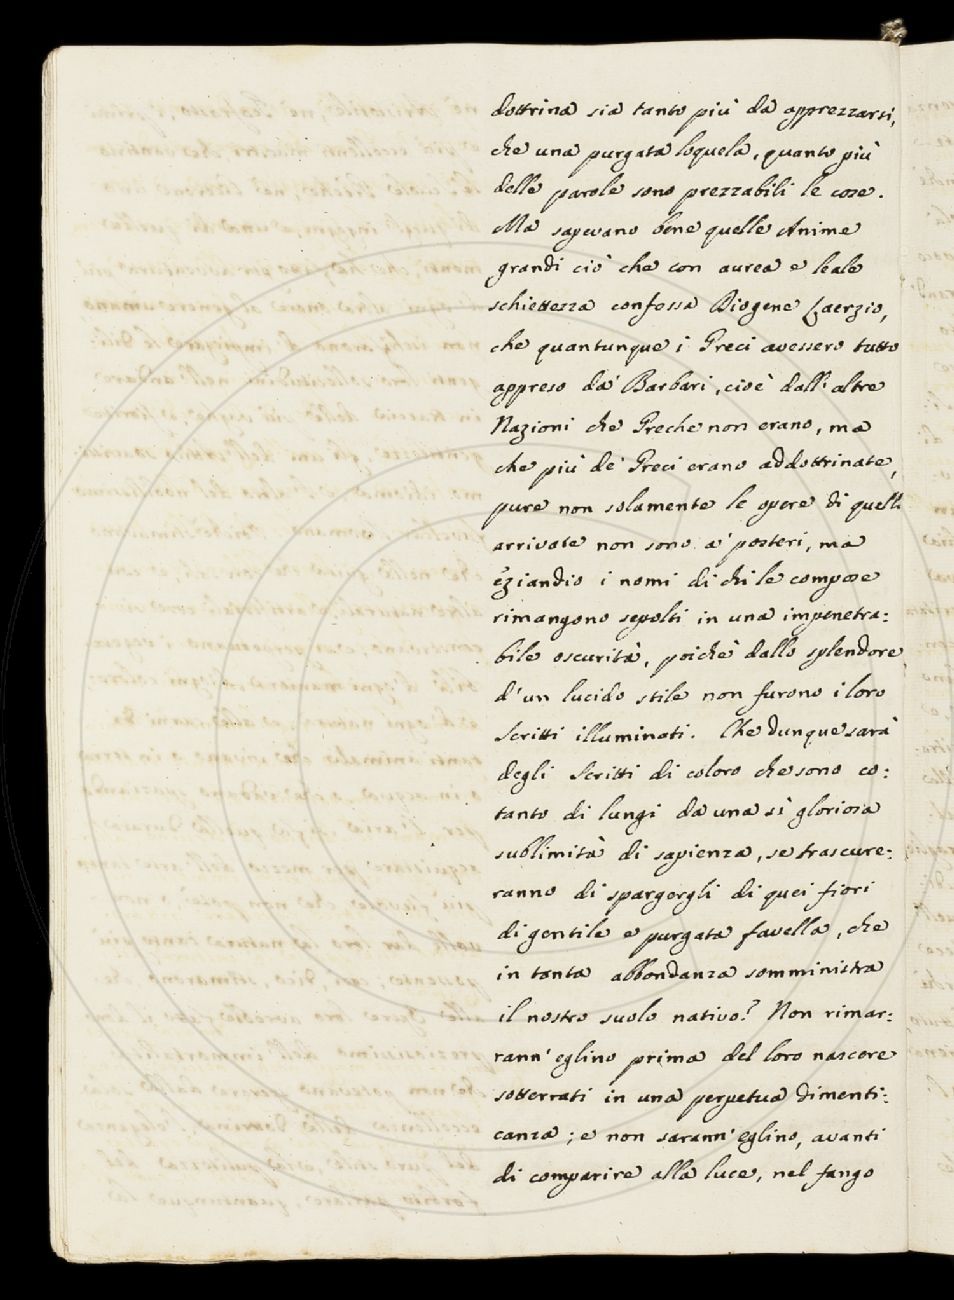 dottrina sia tanto più da apprezzarsi,
che una purgata loquela, quanto più
delle parole sono prezzabili le cose.
Ma sapevano bene quelle Anime
grandi ciò che con aurea e leale
schiettezza confessa Diogene Laerzio,
che quantunque i Greci avessero tutto
appreso da' Barbari, cioè dall'altre
Nazioni che Greche non erano, ma
che più de' Greci erano addottrinate,
pure non solamente le opere di quelli
arrivate non sono a' posteri, ma
eziandio i nomi di chi le compose
rimangono sepolti in una impenetra:
bile oscurità, poichè dallo splendore
d'un lucido stile non furono i loro
Scritti illuminati. Che dunque sarà
degli Scritti di coloro che sono co:
tanto di lungi da una sì gloriosa
sublimità di sapienza, se trascure:
ranno di spargergli di quei fiori
di gentile e purgata favella, che
in tanta abbondanza somministra
il nostro suolo nativo? Non rimar:
rann' eglino prima del loro nascere
sotterrati in una perpetua dimenti:
canza; e non sarann' eglino, avanti
di comparire alla luce, nel fango